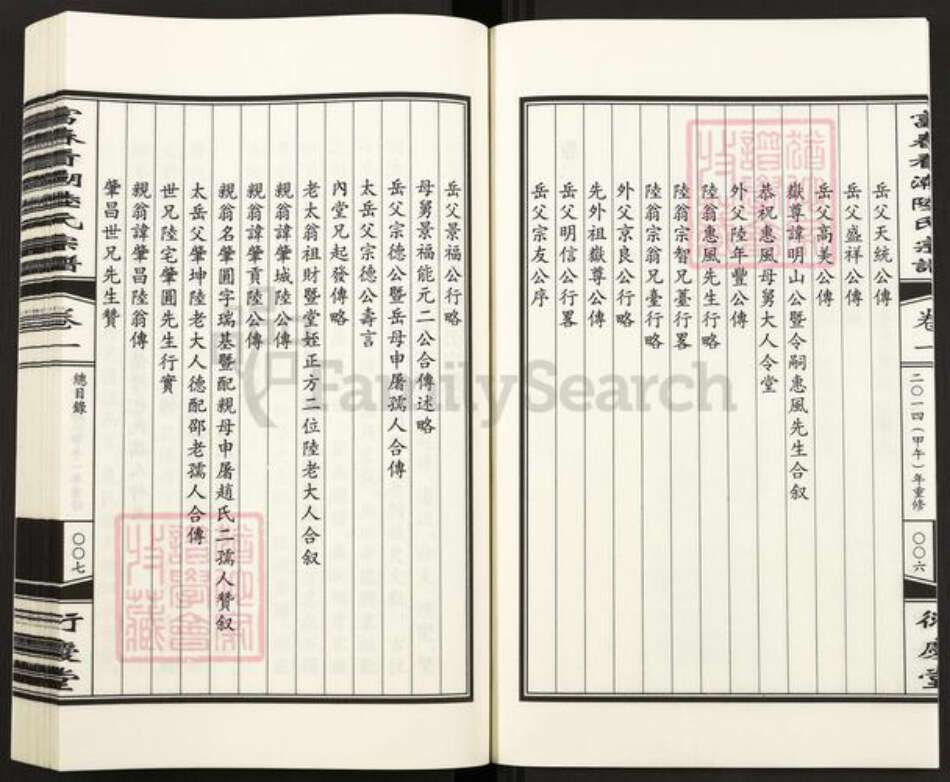 富春看潮陸氏宗譜
卷一
二〇一四(甲午)年重修
〇〇六
衍慶堂
岳父天統公傳
岳父盛祥公傳
岳父高美公傳
嶽尊諱明山公暨令嗣惠風先生合叙
恭祝惠風母舅大人令堂
外父陸年豐公傳
陸翁惠風先生行略
陸翁宗智兄薹行畧
陸翁宗翁兄臺行略
外父京良公行略
先外祖嶽尊公傳
岳父明信公行畧
岳父宗友公序
岳父景福公行略
母舅景福能元二公合傳述略
岳父宗德公暨岳母申屠孺人合傳
太岳父宗德公壽言
內堂兄起發傳略
老太翁祖財暨堂姪正方二位陸老大人合叙
親翁諱肇城陸公傳
親翁諱肇貢陸公傳
親翁名肇圓字瑞基暨配親母申屠趙氏二孺人贊叙
太岳父肇坤陸老大人德配邵老孺人合傳
世兄陸宅肇圓先生行實
親翁諱肇昌陸翁傳
肇昌世兄先生贊
卷一
總目錄
〇〇七
衍慶堂
FamilySearch